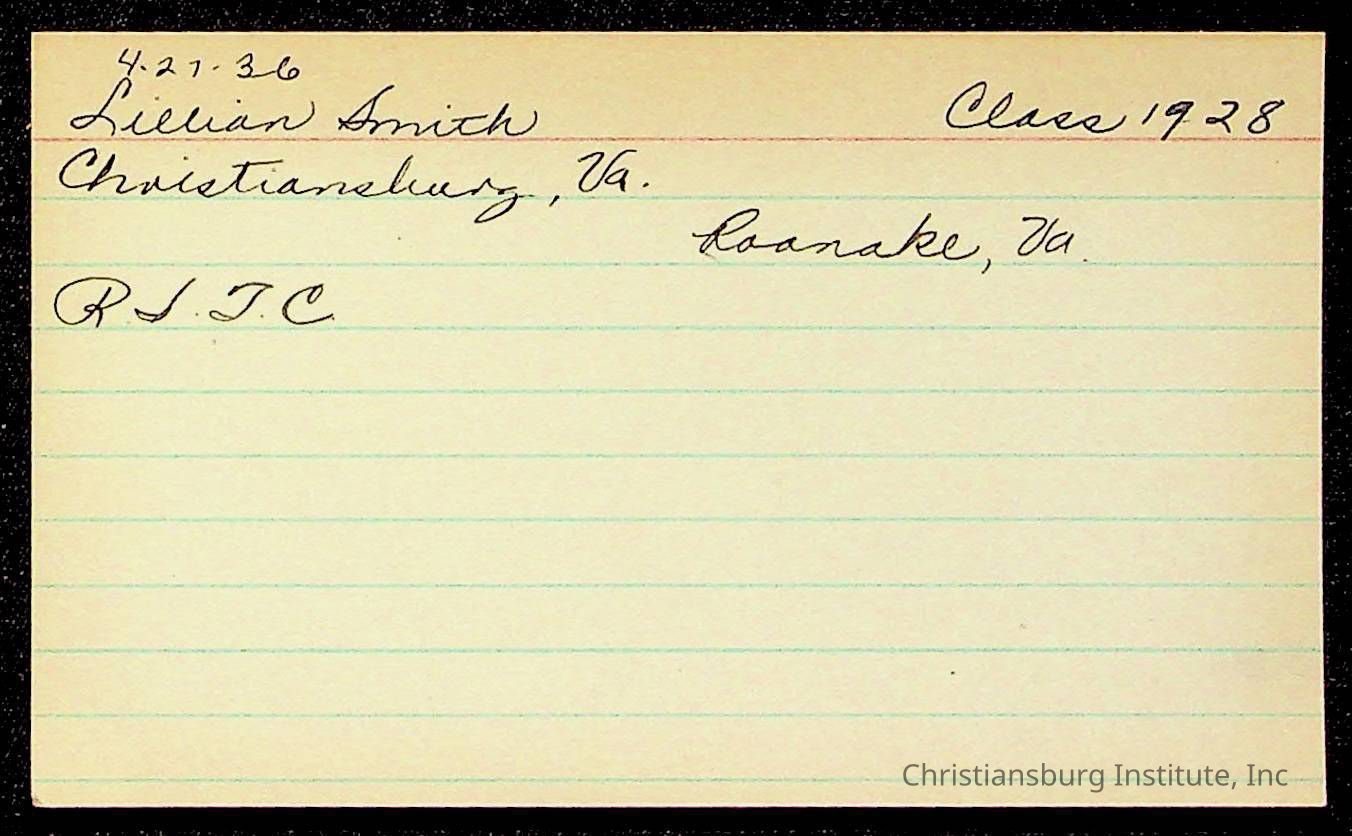 4-27-36
Lillian Smith Class 1928
Christiansburg, Va.
Roanoke, Va.
R. S. T. C.
Christiansburg Institute, Inc